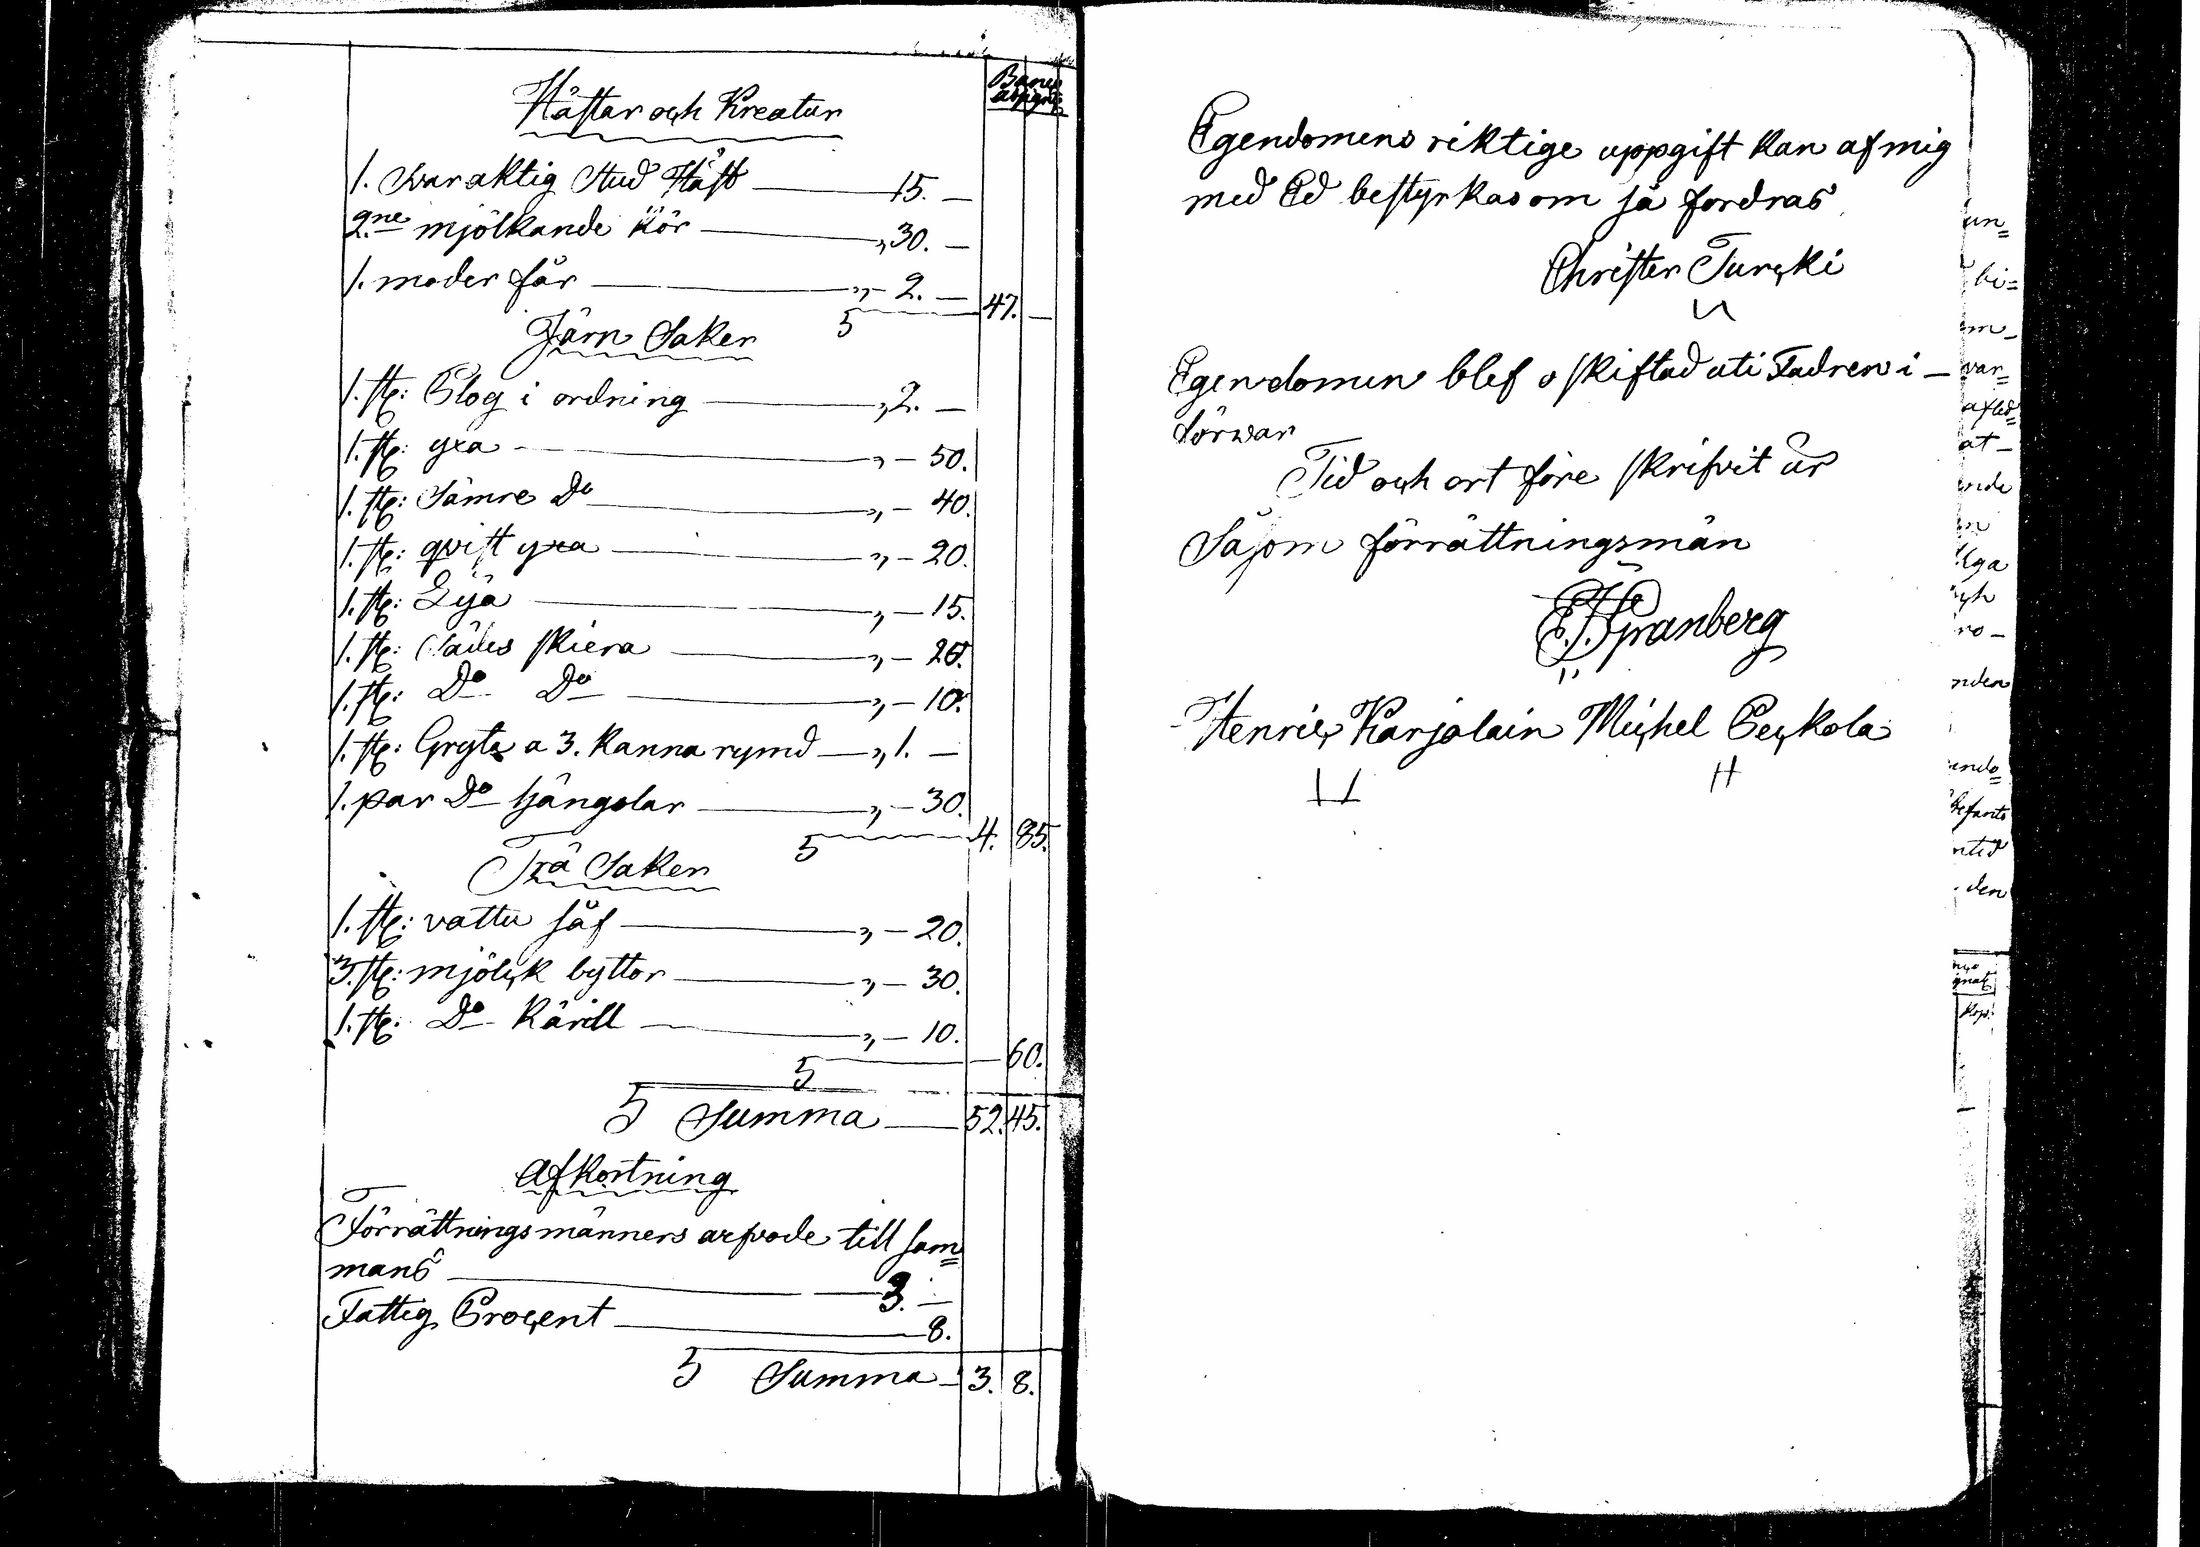 Banco
assign:
Hästar och Kreatur
1. Svaraktig Stud Häst — 15. —
2.ne mjölkande Kör — „ 30. —
1. moder får — „ 2. — 47. —
Järn Saker
1. st: Plog i ordning — „ 2. —
1. st: yxa — „ — 50.
1. st: Sämre Do — „ — 40.
1. st: qvist yxa — „ — 20.
1. st: Lija — „ — 15.
1. st: Sädes skiera — „ — 20.
1. st: Do Do — „ — 10.
1. st: Gryta a 3. Kanna rymd — „ 1. —
1. par Do hängslar — „ — 30.
4. 85.
Trä Saker
1. st: vattu såf — „ — 20.
3. st: mjölck byttor — „ — 30.
1. st: Do Kärill — „ — 10.
— 60.
Summa — 52. 45.
Afkortning
Förrättningsmänners arfvode till sam=
mans — 3. —
Fattig Procent — 8.
Summa — 3. 8.
Egendomens riktige uppgift kan af mig
med Ed bestyrkas om så fordras
Christer Turcki
Egendomen blef o skiftad uti Fadren i —
förwar
Tid och ort före skrifvit är
Såsom förrättningsmän
E. J. Granberg
Henric Karjalain Michel Peckola
un=
bi=
om_
var=
afled=
at_
ende
lga
och
ro_
nden
ende=
befants
ntid
den
gnat
Kop: